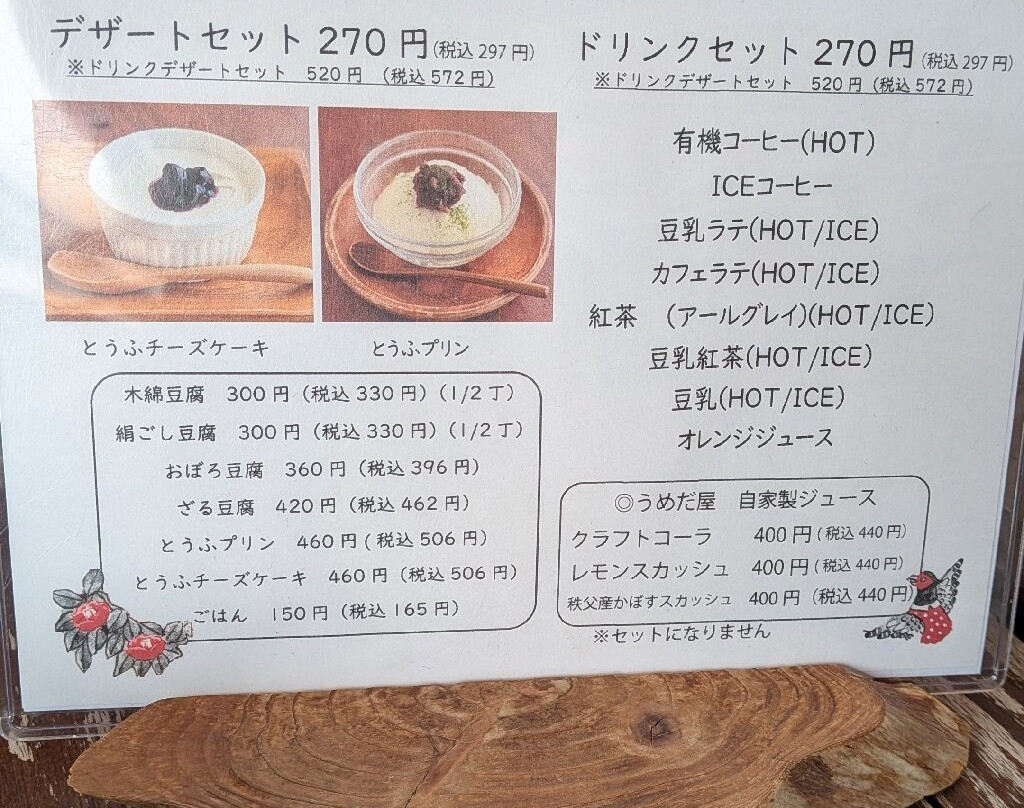 デザートセット 270 円(税込 297 円)
※ドリンクデザートセット 520 円 (税込 572 円)
とうふチーズケーキ
とうふプリン
木綿豆腐 300 円 (税込 330 円) (1/2 丁)
絹ごし豆腐 300 円 (税込 330 円) (1/2 丁)
おぼろ豆腐 360 円 (税込 396 円)
ざる豆腐 420 円 (税込 462 円)
とうふプリン 460 円 (税込 506 円)
とうふチーズケーキ 460 円 (税込 506 円)
ごはん 150 円 (税込 165 円)
ドリンクセット 270 円(税込 297 円)
※ドリンクデザートセット 520 円 (税込 572 円)
有機コーヒー(HOT)
ICEコーヒー
豆乳ラテ(HOT/ICE)
カフェラテ(HOT/ICE)
紅茶 (アールグレイ)(HOT/ICE)
豆乳紅茶(HOT/ICE)
豆乳(HOT/ICE)
オレンジジュース
◎うめだ屋 自家製ジュース
クラフトコーラ 400 円 (税込 440 円)
レモンスカッシュ 400 円 (税込 440 円)
秩父産かぼすスカッシュ 400 円 (税込 440 円)
※セットになりません